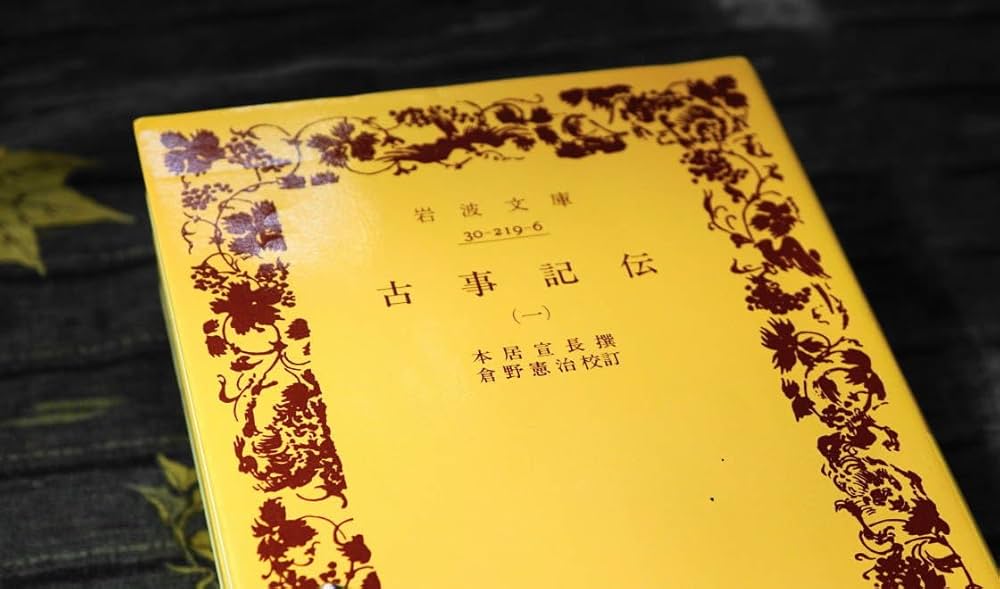 岩波文庫
30-219-6
古事記伝
(一)
本居宣長撰
倉野憲治校訂